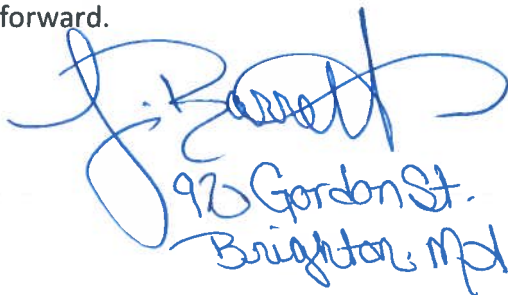 forward.
J. Barrett
920 Gordon St.
Brighton, Md